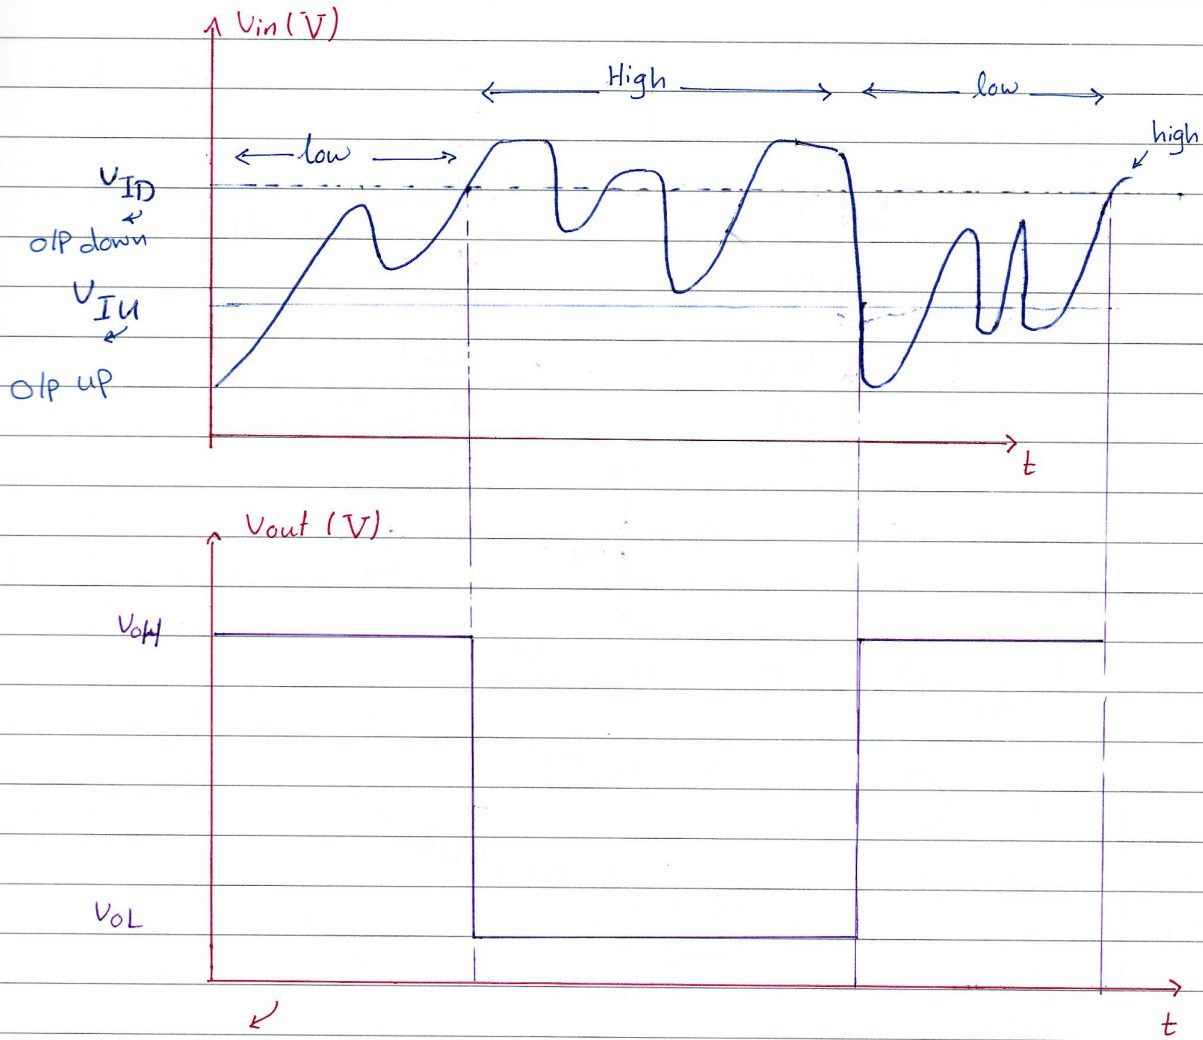 Vin (V)
High
low
high
low
VID
O/P down
VIU
O/P up
t
Vout (V).
VOH
VOL
t